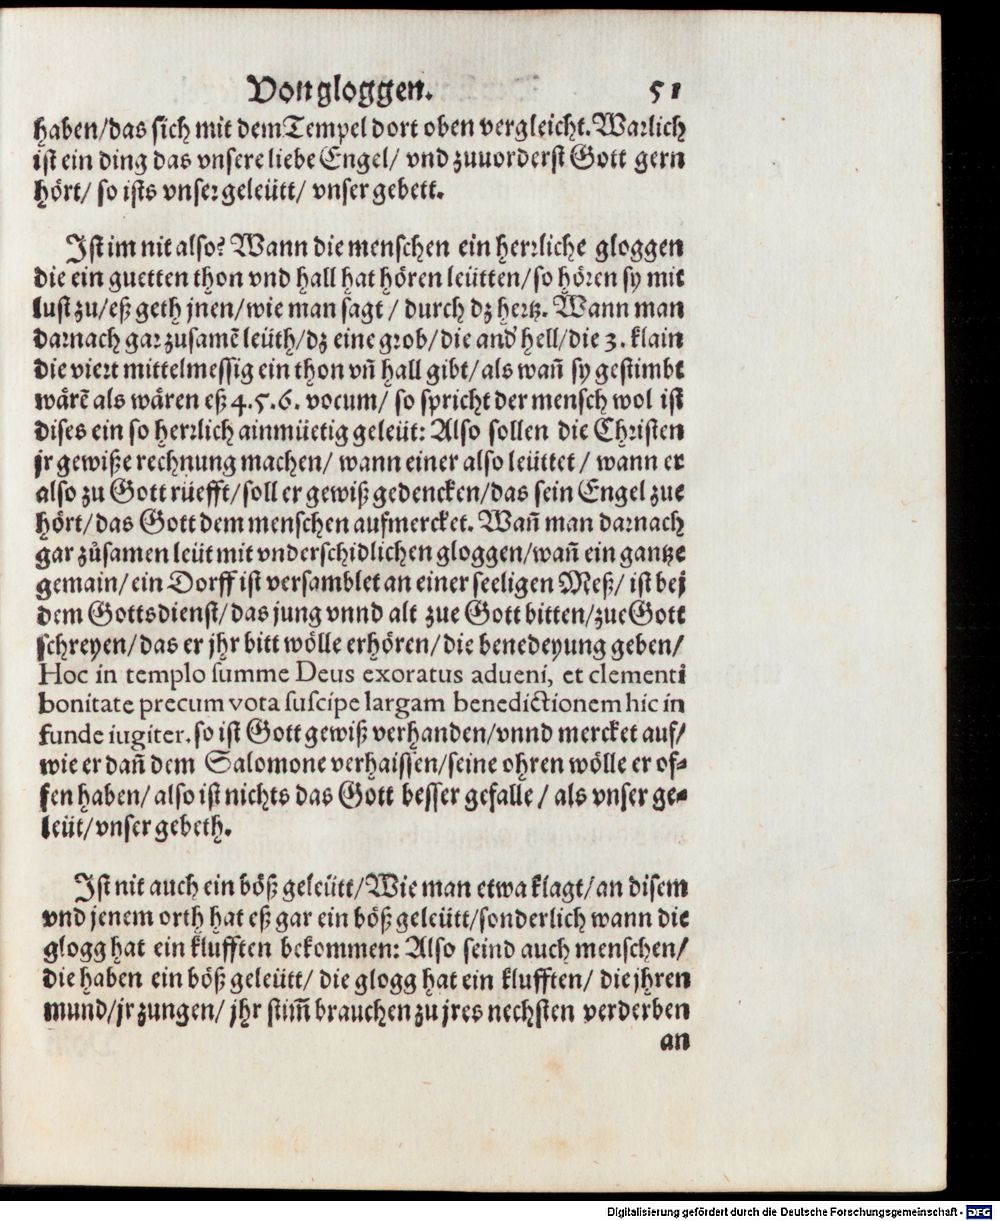 Von gloggen. 51
haben/das sich mit dem Tempel dort oben vergleicht. Warlich
ist ein ding das vnsere liebe Engel/ vnd zuuorderst Gott gern
hört/ so ists vnser geleütt/ vnser gebett.
Ist im nit also? Wann die menschen ein herrliche gloggen
die ein guetten thon vnd hall hat hören leütten/so hören sy mit
lust zu/eß geth jnen/wie man sagt / durch dz hertz. Wann man
darnach gar zusamẽ leüth/dz eine grob/die and' hell/die 3. klain
die viert mittelmessig ein thon vñ hall gibt/als wañ sy gestimbt
wärẽ als wären eß 4.5.6. vocum/ so spricht der mensch wol ist
dises ein so herrlich ainmüetig geleüt: Also sollen die Christen
jr gewiße rechnung machen/ wann einer also leüttet / wann er
also zu Gott rüefft/soll er gewiß gedencken/das sein Engel zue
hört/das Gott dem menschen aufmercket. Wañ man darnach
gar zůsamen leüt mit vnderschidlichen gloggen/wañ ein gantze
gemain/ein Dorff ist versamblet an einer seeligen Meß/ ist bej
dem Gottsdienst/das jung vnnd alt zue Gott bitten/zue Gott
schreyen/das er jhr bitt wölle erhören/die benedeyung geben/
Hoc in templo summe Deus exoratus adueni, et clementi
bonitate precum vota suscipe largam benedictionem hic in
funde iugiter. so ist Gott gewiß verhanden/vnnd mercket auf/
wie er dañ dem Salomone verhaissen/seine ohren wölle er of-
fen haben/ also ist nichts das Gott besser gefalle / als vnser ge-
leüt/vnser gebeth.
Ist nit auch ein böß geleütt/Wie man etwa klagt/an disem
vnd jenem orth hat eß gar ein böß geleütt/sonderlich wann die
glogg hat ein klufften bekommen: Also seind auch menschen/
die haben ein böß geleütt/ die glogg hat ein klufften/ die jhren
mund/jr zungen/ jhr stim̃ brauchen zu jres nechsten verderben
an
Digitalisierung gefördert durch die Deutsche Forschungsgemeinschaft - DFG